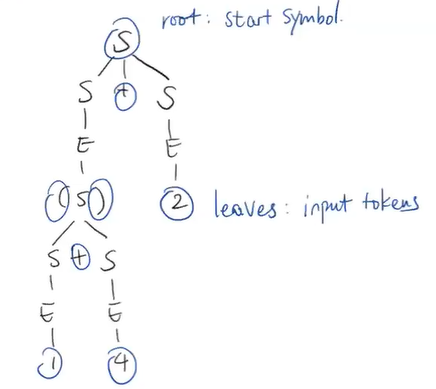 root: start symbol.
S
S + S
E E
( S ) 2 leaves: input tokens
S + S
E E
1 4